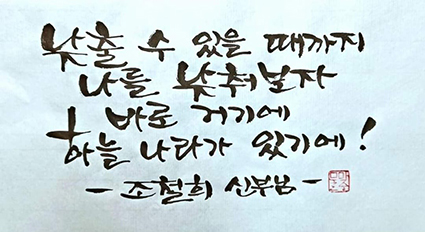 낮출 수 있을 때까지
나를 낮춰보자
바로 거기에
하늘 나라가 있기에!
- 조철희 신부님 -